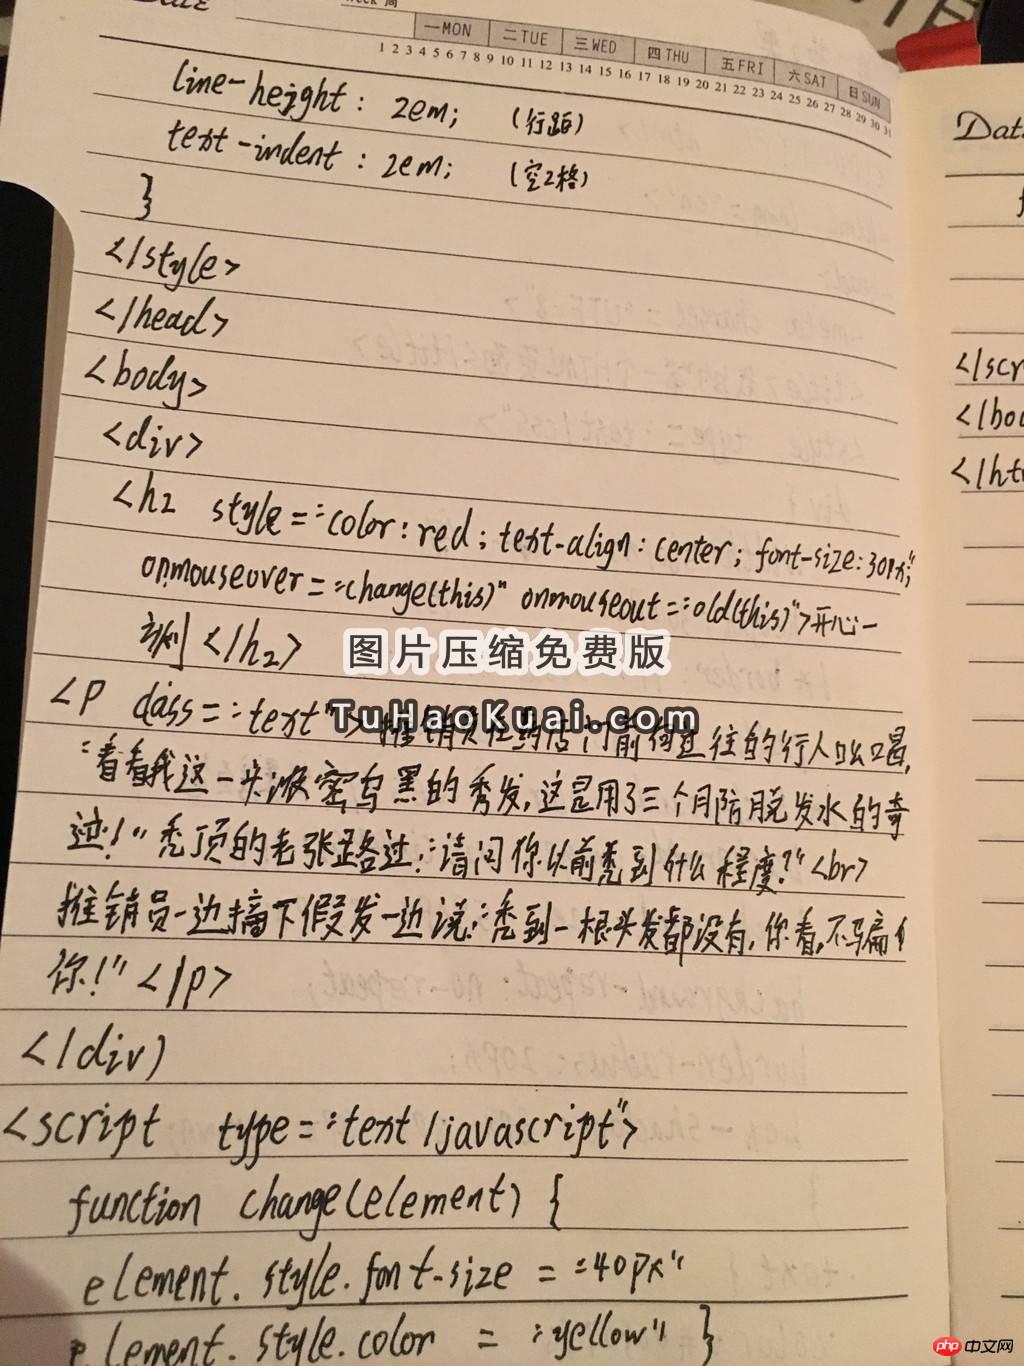 DATE
Week 周
一MON 二TUE 三WED 四THU 五FRI 六SAT 日SUN
1 2 3 4 5 6 7 8 9 10 11 12 13 14 15 16 17 18 19 20 21 22 23 24 25 26 27 28 29 30 31
line-height: 2em; (行距)
text-indent: 2em; (空2格)
}
</style>
</head>
<body>
<div>
<h2 style="color:red; text-align:center; font-size:30px;"
onmouseover="change(this)" onmouseout="old(this)">开心一
刻</h2>
<p class="text">推销员在药店门前向过往的行人吆喝,
"看看我这一头浓密乌黑的秀发,这是用了三个月防脱发水的奇
迹!"秃顶的老张路过:"请问你以前秃到什么程度?"<br>
推销员一边摘下假发一边说:"秃到一根头发都没有,你看,不骗
你!"</p>
</div)
<script type="text/javascript">
function change(element) {
element.style.font-size = "40px"
element.style.color = "yellow" }
Dat
</scr
</bod
</ht
图片压缩免费版
TuHaoKuai.com
php 中文网